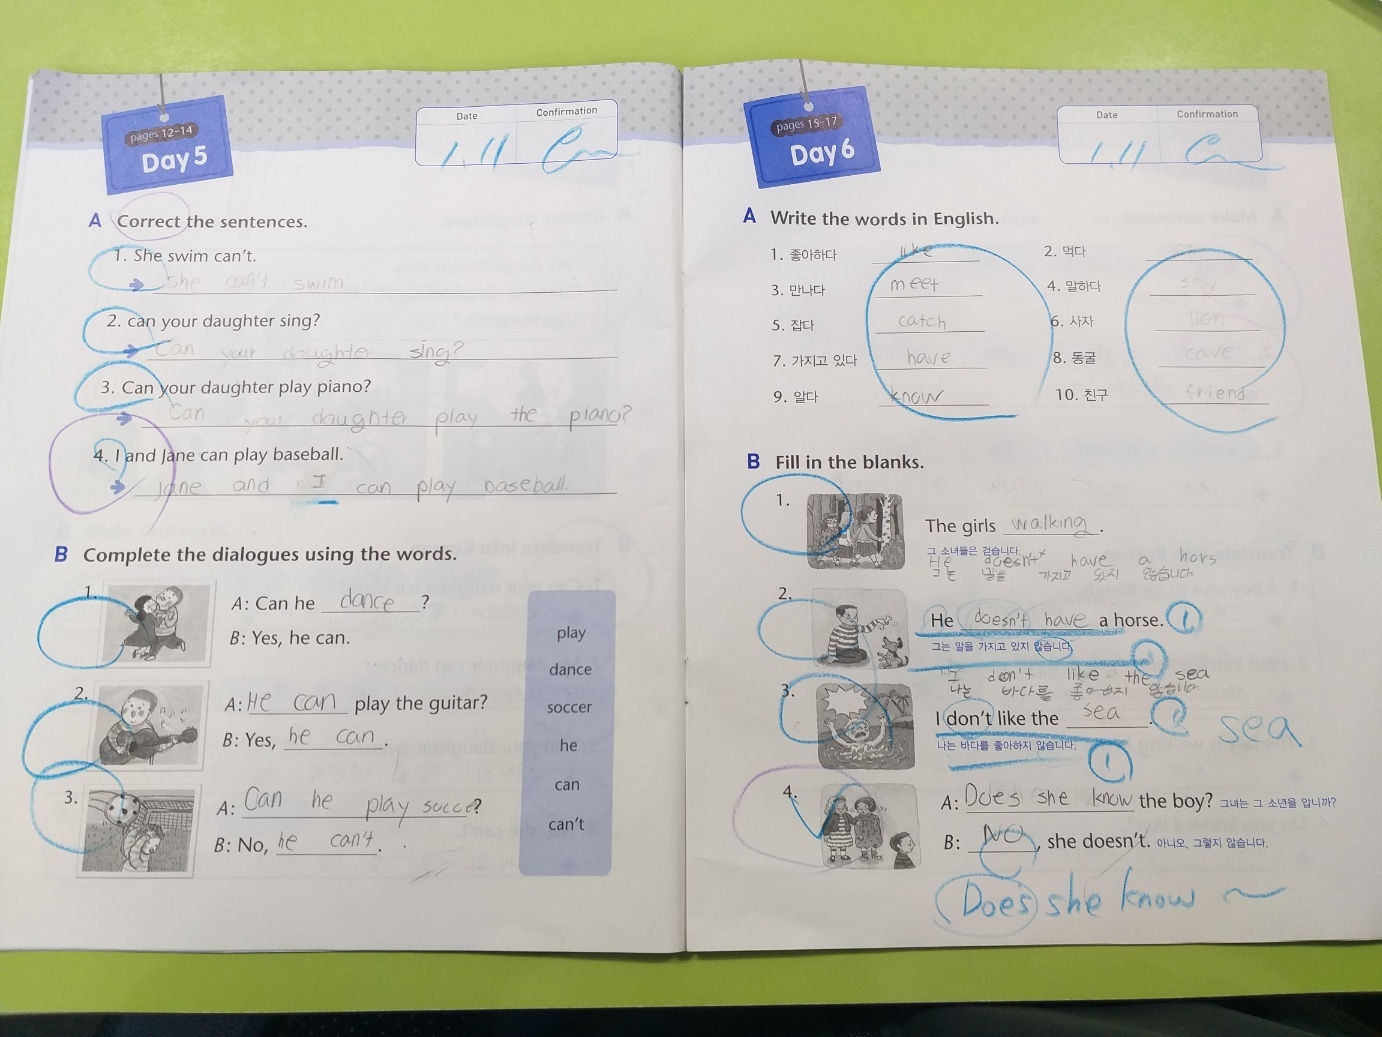 pages 12-14
Day 5
Date
Confirmation
1.11
A Correct the sentences.
1. She swim can't.
She can't swim
2. can your daughter sing?
Can your daughter sing?
3. Can your daughter play piano?
Can your daughter play the piano?
4. I and Jane can play baseball.
Jane and I can play baseball.
B Complete the dialogues using the words.
1.
A: Can he dance ?
B: Yes, he can.
2.
A: He can play the guitar?
B: Yes, he can .
3.
A: Can he play socce?
B: No, he can't .
play
dance
soccer
he
can
can't
pages 15-17
Day 6
Date
Confirmation
1.11
A Write the words in English.
1. 좋아하다 like
2. 먹다
3. 만나다 meet
4. 말하다 say
5. 잡다 catch
6. 사자 lion
7. 가지고 있다 have
8. 동굴 cave
9. 알다 know
10. 친구 friend
B Fill in the blanks.
1.
The girls walking .
그 소녀들은 걷습니다.
He doesn't have a hors
그는 말을 가지고 있지 않습니다
2.
He doesn't have a horse. 1
그는 말을 가지고 있지 않습니다.
I don't like the sea
나는 바다를 좋아하지 않습니다
3.
I don't like the sea . sea
나는 바다를 좋아하지 않습니다.
1
4.
A: Does she know the boy? 그녀는 그 소년을 압니까?
B: NO , she doesn't. 아니오, 그렇지 않습니다.
Does she know ~